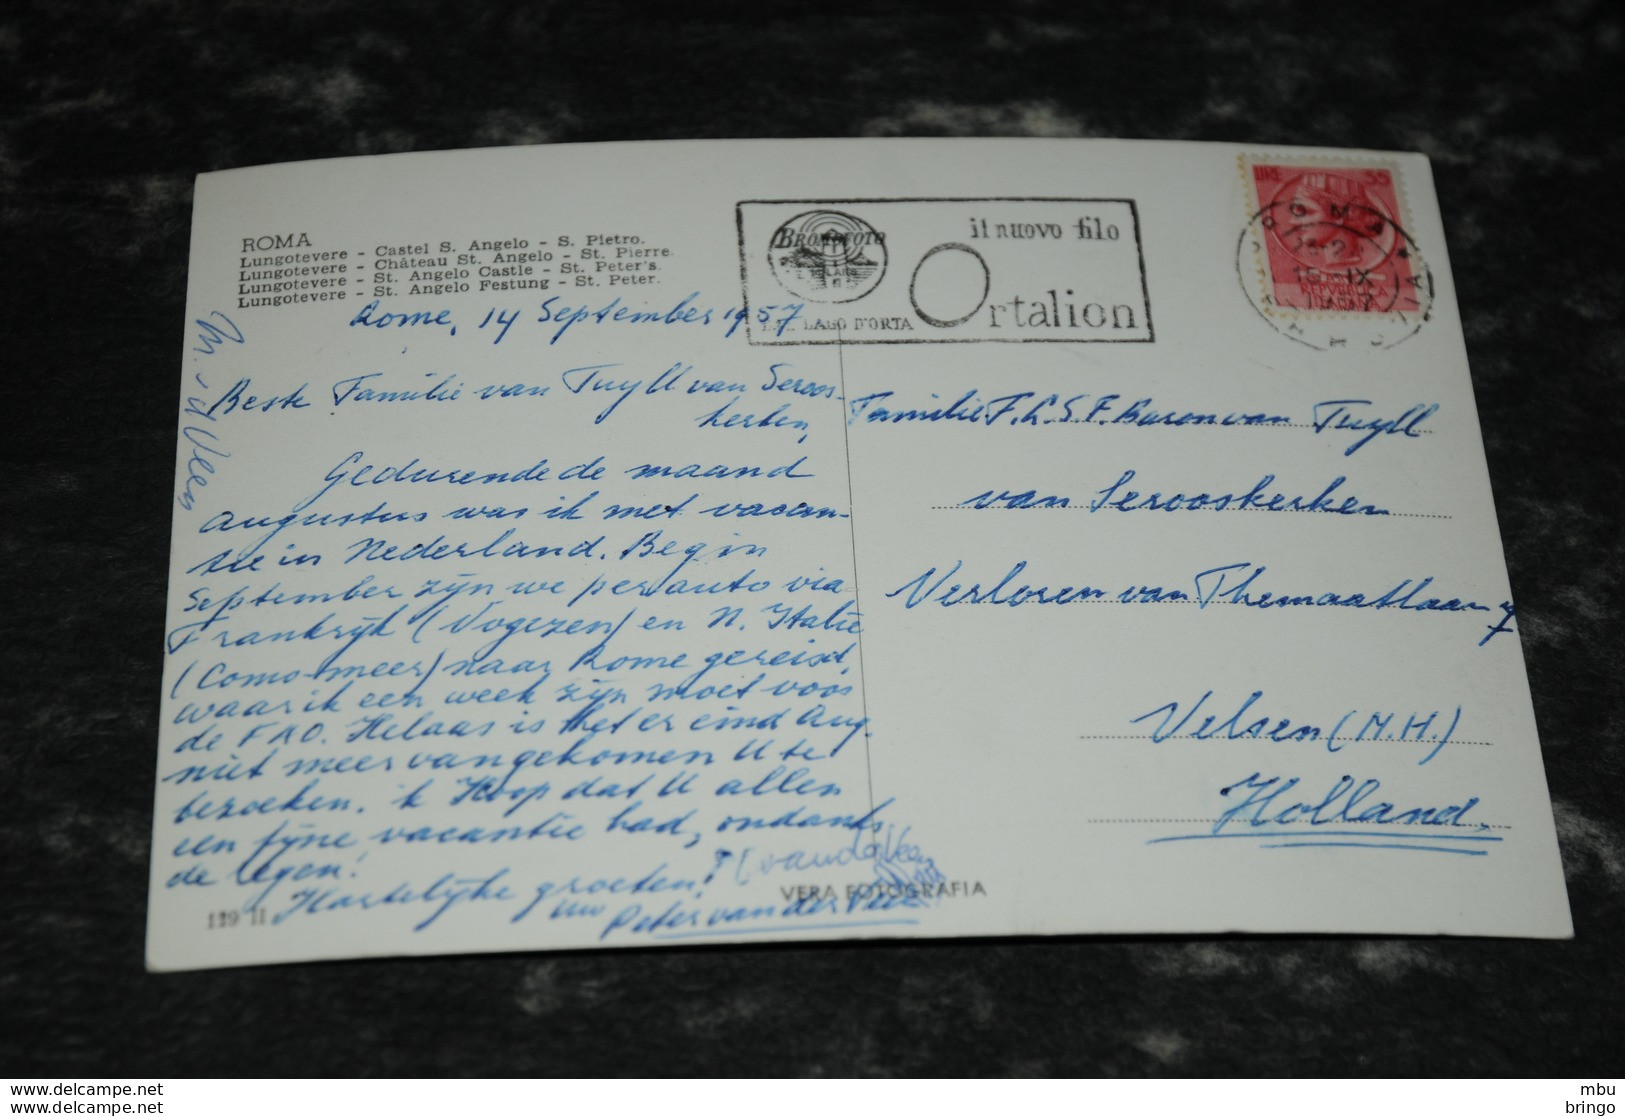 ROMA
Lungotevere - Castel S. Angelo - S. Pietro.
Lungotevere - Château St. Angelo - St. Pierre.
Lungotevere - St. Angelo Castle - St. Peter's.
Lungotevere - St. Angelo Festung - St. Peter.
Rome, 14 September 1957
Beste Familie van Tuyll van Seroos-
kerken,
Gedurende de maand
Augustus was ik met vacan-
tie in Nederland. Begin
September zijn we per auto via
Frankrijk (Vogezen) en N. Italië
(Como-meer) naar Rome gereisd,
waar ik een week zijn moet voor
de FAO. Helaas is het er eind Aug.
niet meer van gekomen U te
bezoeken. Ik Hoop dat U allen
een fijne vacantie had, ondanks
de regen!
Hartelijke groeten!
uw Peter van der Veen
(van der Veen
M. v d Veen
119 II
VERA FOTOGRAFIA
BROMOFOTO
MILANO
LAGO D'ORTA
il nuovo filo
Ortalion
LIRE 35
ROMA
REPUBBLICA
ITALIANA
Familie F.L.S.F. Baron van Tuyll
van Serooskerken
Verloren van Themaatlaan 7
Velsen (N.H.)
Holland.
www.delcampe.net
www.delcampe.net
mbu
bringo